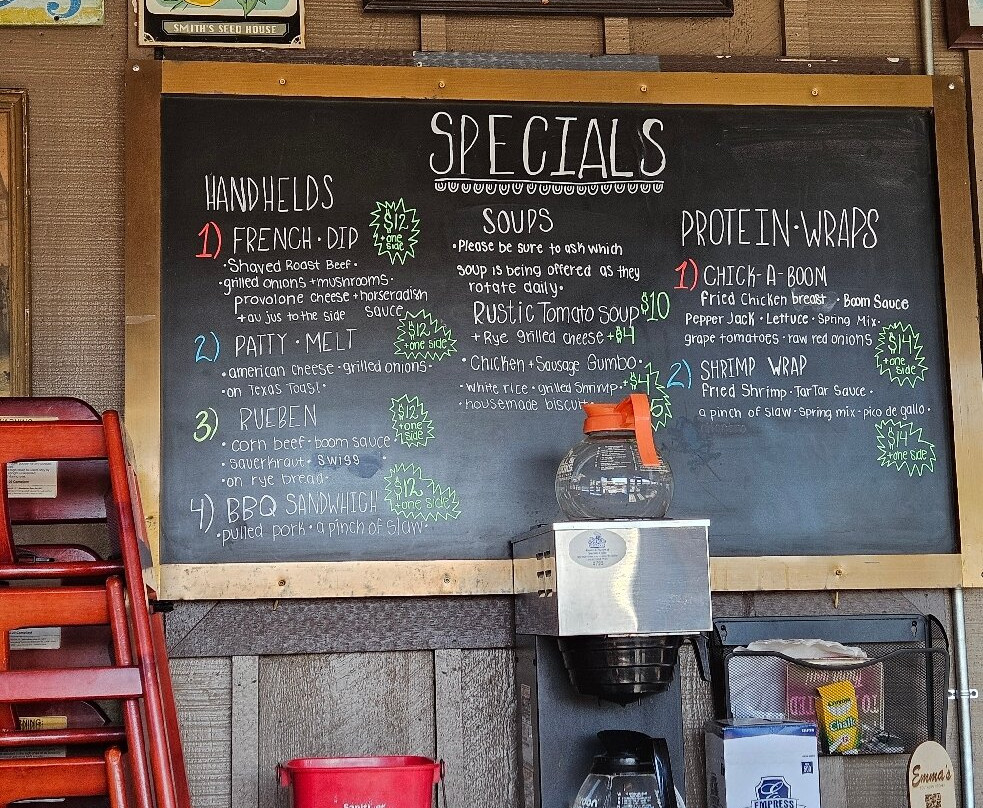 SMITH'S SEED HOUSE
SPECIALS
HANDHELDS
1) FRENCH · DIP
$12
+one
side
·Shaved Roast Beef·
·grilled onions + mushrooms·
provolone cheese + horseradish
sauce
+ au jus to the side
2) PATTY · MELT
$12
+one side
·american cheese·grilled onions·
·on Texas Toast·
3) RUEBEN
$12
+one
side
· corn beef·boom sauce
· sauerkraut· swiss
·on rye bread·
4) BBQ SANDWHICH
$12
+one side
·pulled pork · a pinch of slaw·
SOUPS
·Please be sure to ask which
soup is being offered as they
rotate daily·
Rustic Tomato soup $10
+ Rye grilled cheese +$4
·Chicken + Sausage Gumbo·
·white rice·grilled shrimp·+$4
·housemade biscuit
PROTEIN·WRAPS
1) CHICK-A-BOOM
Fried Chicken breast · Boom Sauce
Pepper Jack · Lettuce · Spring Mix·
grape tomatoes · raw red onions
$14
+one
side
2) SHRIMP WRAP
Fried Shrimp·TarTar Sauce·
a pinch of slaw·Spring mix·pico de gallo·
$14
+one side
Chalk
EMPRESS
Emma's